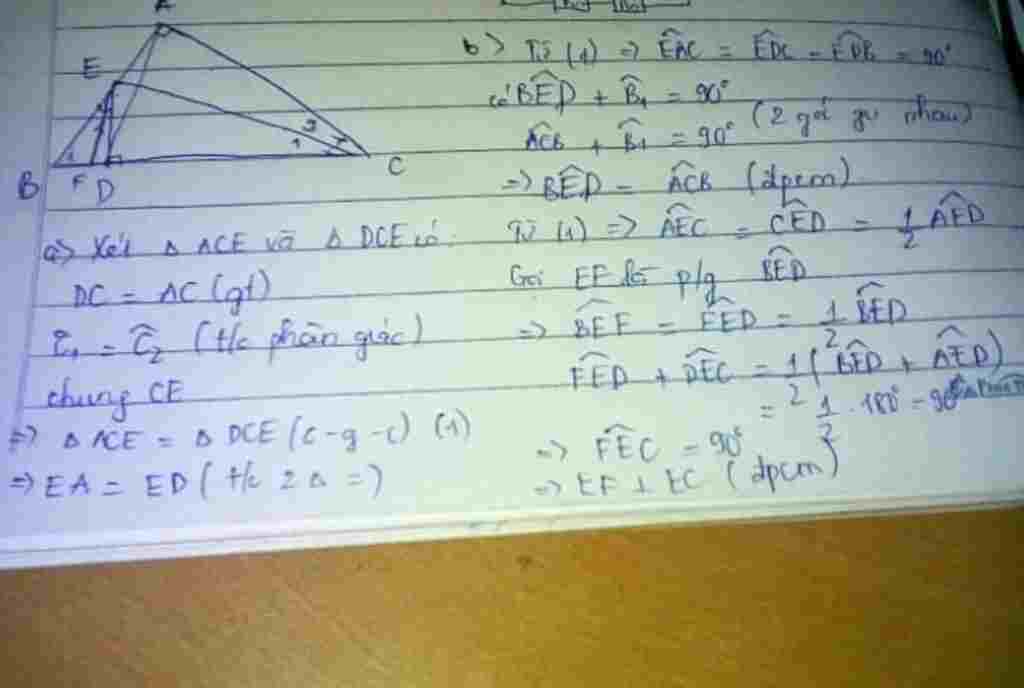 A
E
B F D C
1
1 2
a> Xét Δ ACE và Δ DCE có:
DC = AC (gt)
Ĉ1 = Ĉ2 (t/c phân giác)
chung CE
=> Δ ACE = Δ DCE (c-g-c) (1)
=> EA = ED (t/c 2 Δ =)
b> Từ (1) => EAC = EDC = EDB = 90°
có BED + B1 = 90°
ACB + B1 = 90° (2 góc gv nhau)
=> BED = ACB (dpcm)
Từ (1) => AEC = CED = 1/2 AED
Gọi EF là p/g BED
=> BEF = FED = 1/2 BED
FED + DEC = 1/2 (BED + AED)
= 1/2 . 180° = 90°
=> FEC = 90°
=> EF ⊥ EC (dpcm)